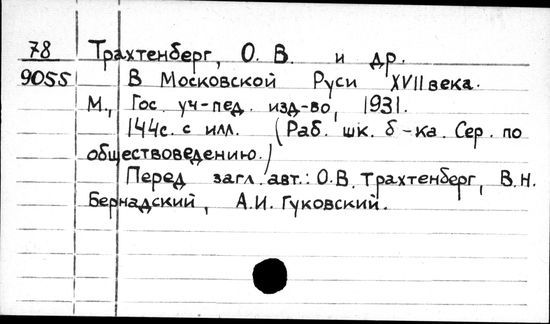 78 Трахтенберг, О. В. и др.
9055 В Московской Руси XVII века.
М., Гос уч-пед. изд-во, 1931.
144с. с илл. (Раб. шк. б-ка. Сер. по
обществоведению.)
Перед загл. авт.: О.В. Трахтенберг, В.Н.
Бернадский, А.И. Гуковский.